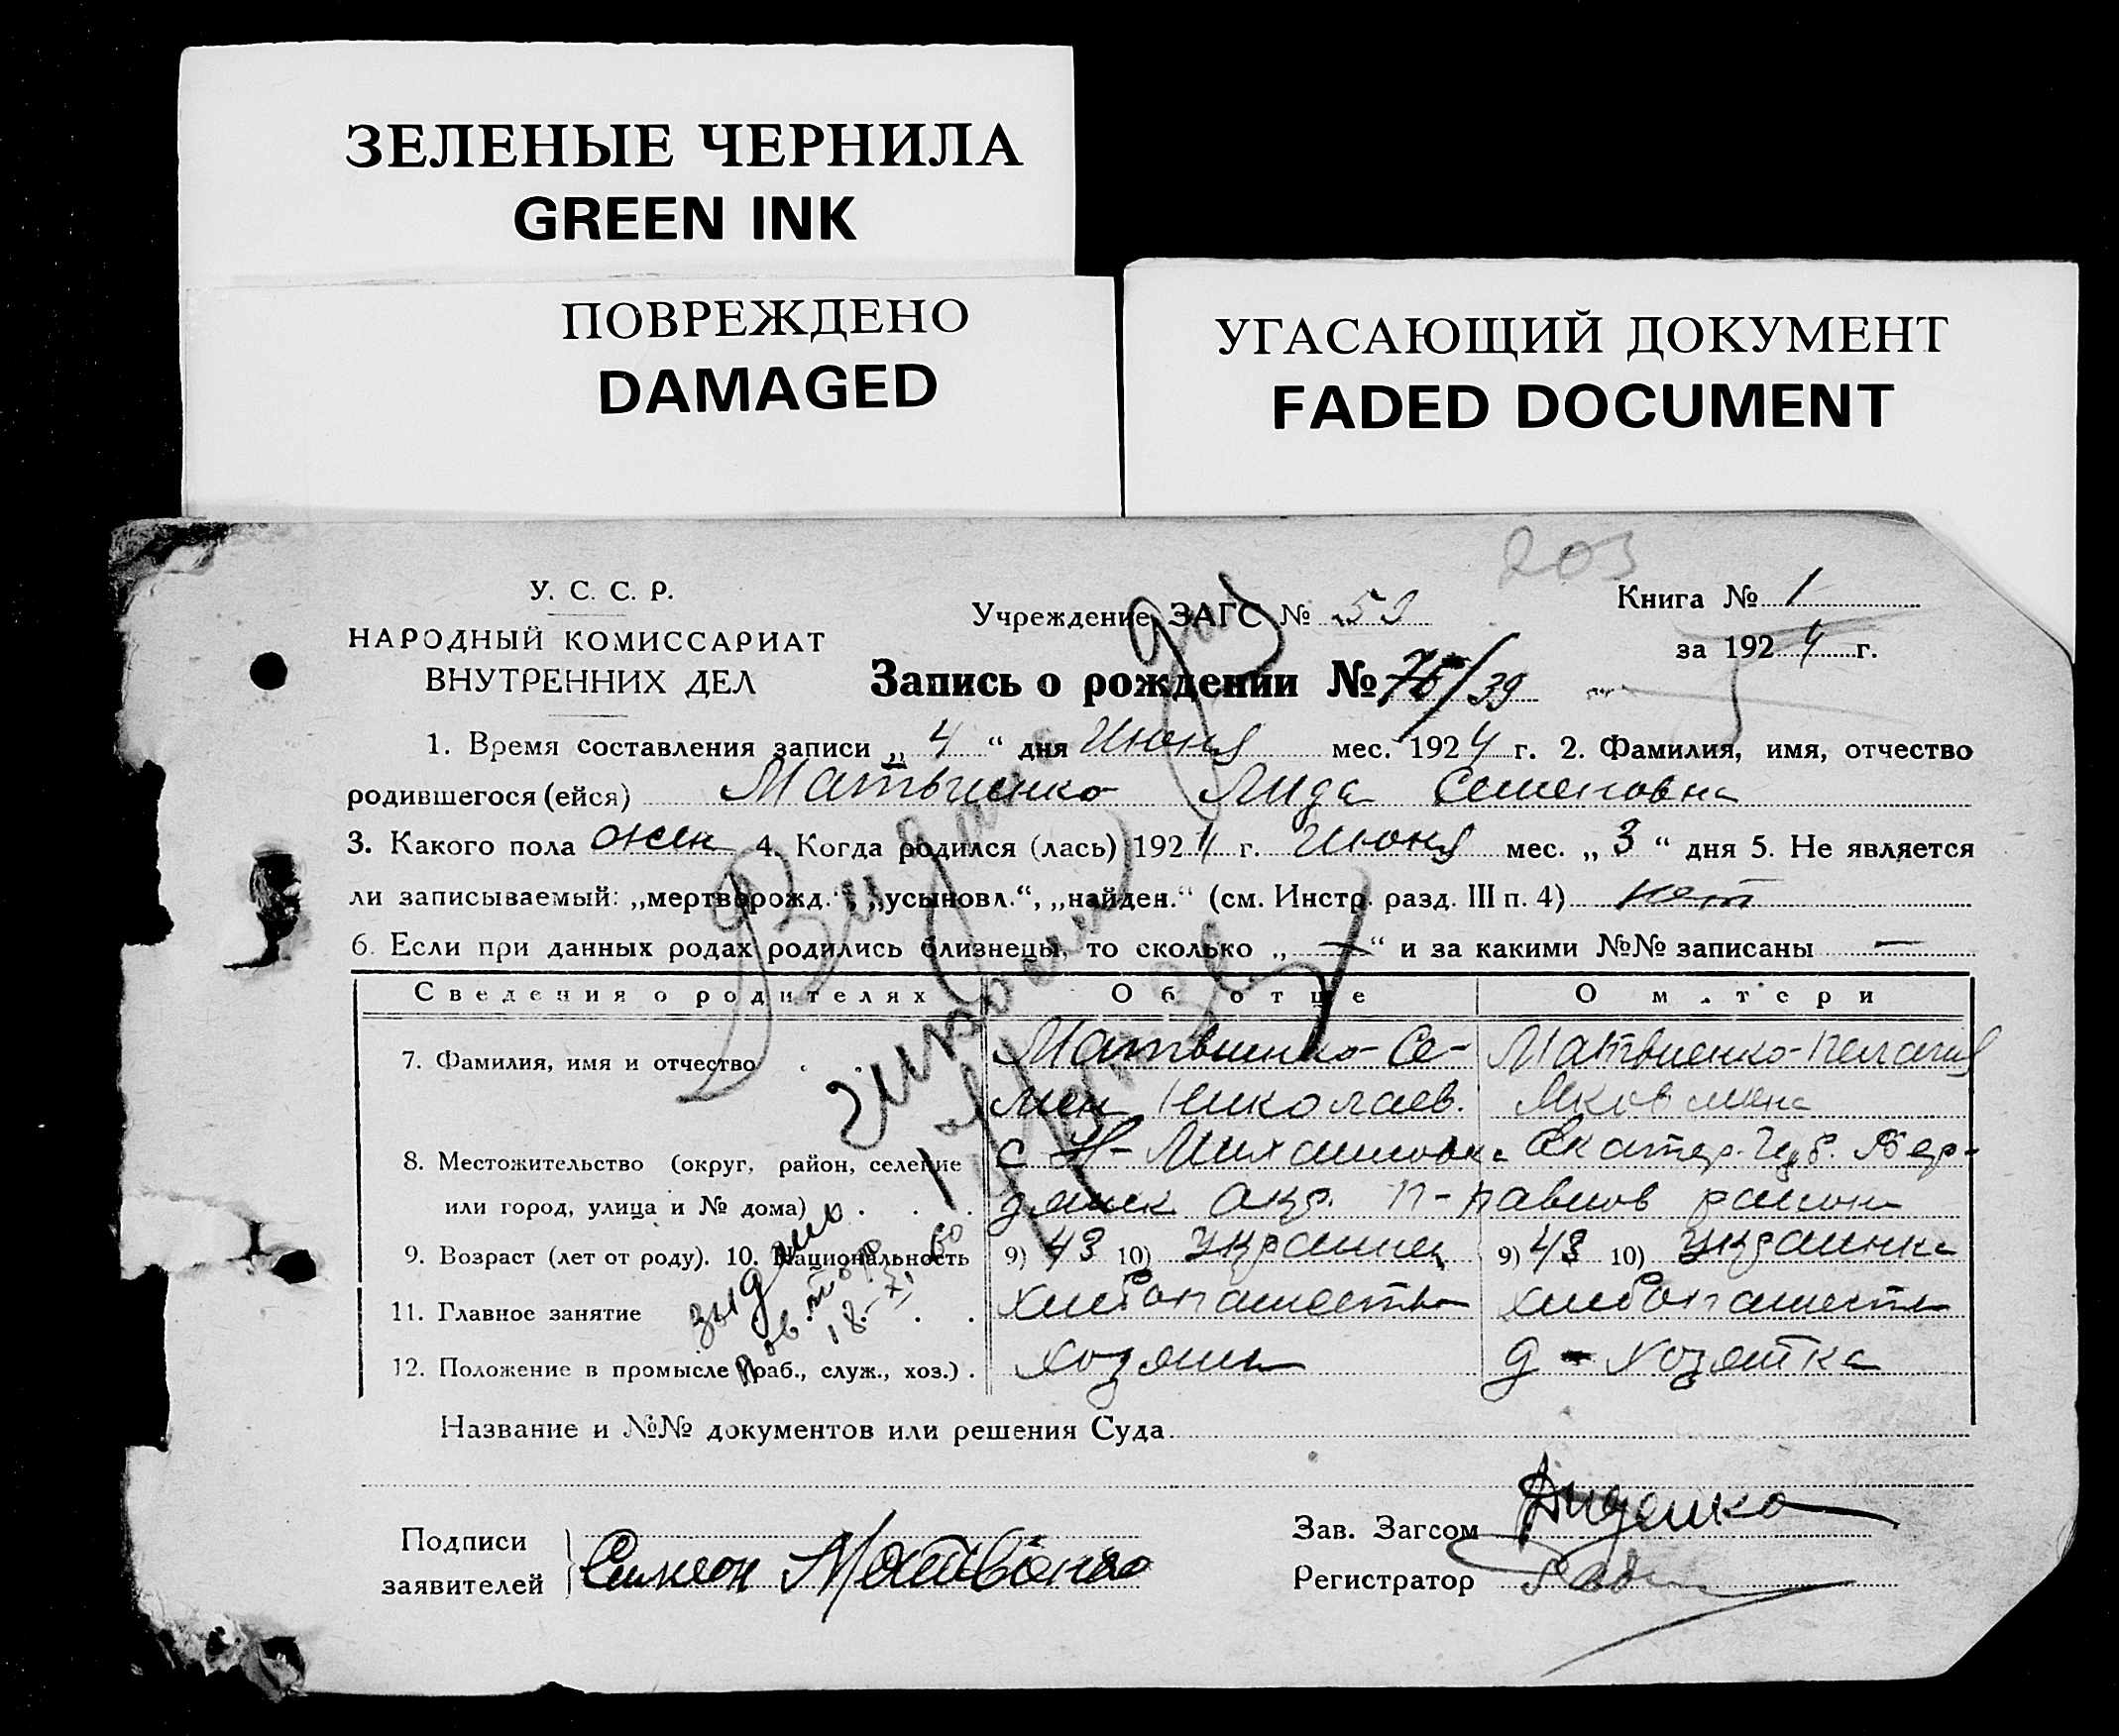 ЗЕЛЕНЫЕ ЧЕРНИЛА
GREEN INK
ПОВРЕЖДЕНО
DAMAGED
УГАСАЮЩИЙ ДОКУМЕНТ
FADED DOCUMENT
203
У. С. С. Р.
НАРОДНЫЙ КОМИССАРИАТ
ВНУТРЕННИХ ДЕЛ
Учреждение ЗАГС № 53
Книга № 1
за 1924 г.
Запись о рождении № 76/39
1. Время составления записи „4“ дня Июня мес. 1924 г. 2. Фамилия, имя, отчество
родившегося (ейся) Матвиенко Лида Семеновна
3. Какого пола жен 4. Когда родился (лась) 1924 г. Июня мес. „3“ дня 5. Не является
ли записываемый: „мертворожд.“, „усыновл.“, „найден.“ (см. Инстр. разд. III п. 4) нет
6. Если при данных родах родились близнецы, то сколько „—“ и за какими №№ записаны —
Сведения о родителях Об отце О матери
7. Фамилия, имя и отчество Матвиенко Се- Матвиенко Пелагия
мен Николаев. Яковлевна
8. Местожительство (округ, район, селение с Н-Михайловка Екатер. Губ. Бер-
или город, улица и № дома) дянск окр. П-павлов района
9. Возраст (лет от роду). 10. Национальность 9) 43 10) украинец 9) 43 10) украинка
11. Главное занятие хлебопашество хлебопашеств
12. Положение в промысле (раб., служ., хоз.) хозяин д-хозяйка
выдано
повтор
18-XI
Название и №№ документов или решения Суда
Подписи
заявителей
Зав. Загсом Диденко
Регистратор